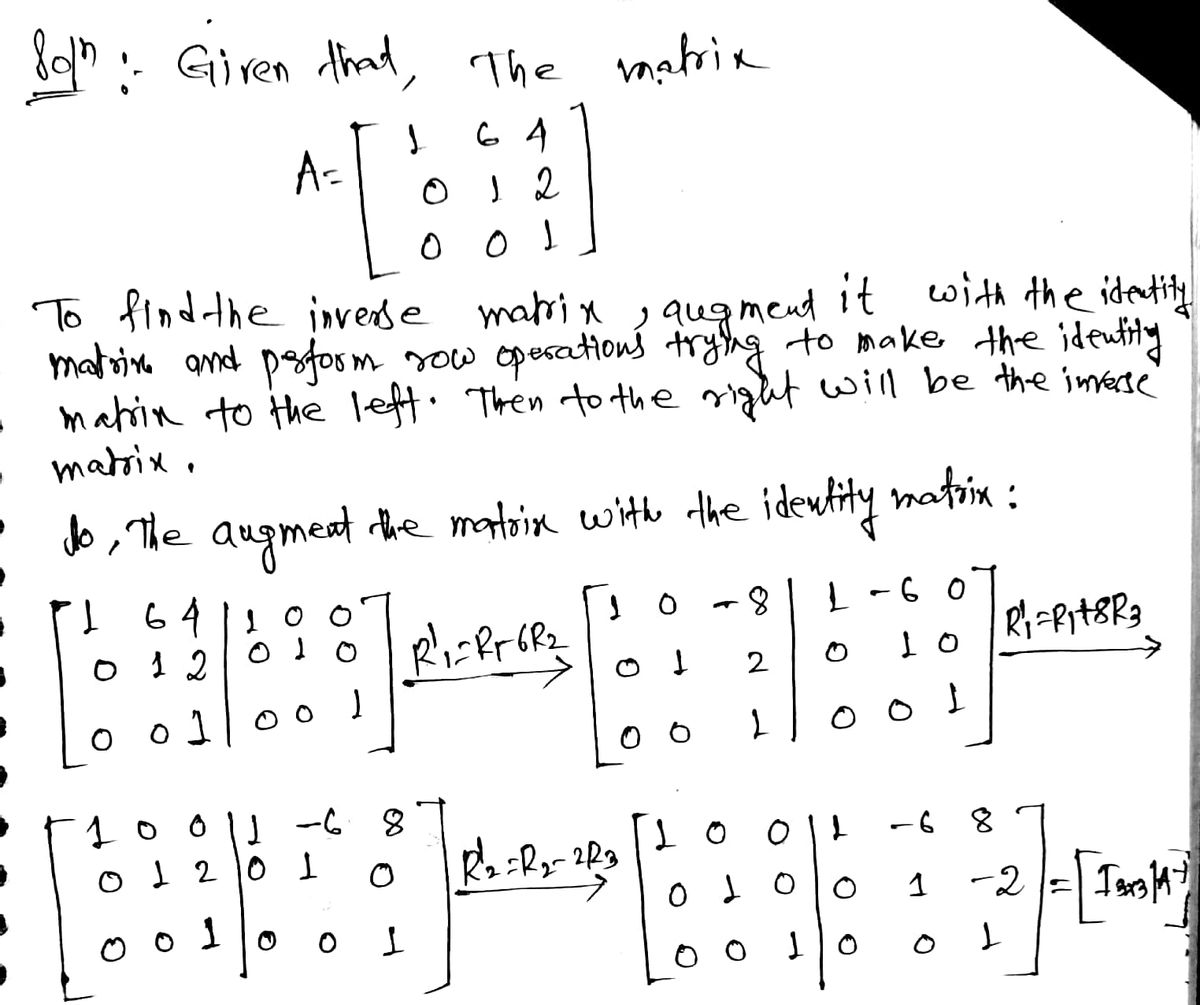 Solⁿ :- Given that, The matrix
A = [ 1 6 4
0 1 2
0 0 1 ]
To find the inverse matrix, augment it with the identity
matrix and perform row operations trying to make the identity
matrix to the left. Then to the right will be the inverse
matrix.
So, The augment the matrix with the identity matrix :
[ 1 6 4 | 1 0 0 ] R'₁=R₁-6R₂ → [ 1 0 -8 | 1 -6 0 ] R'₁=R₁+8R₃ →
[ 0 1 2 | 0 1 0 ] [ 0 1 2 | 0 1 0 ]
[ 0 0 1 | 0 0 1 ] [ 0 0 1 | 0 0 1 ]
[ 1 0 0 | 1 -6 8 ] R'₂=R₂-2R₃ → [ 1 0 0 | 1 -6 8 ]
[ 0 1 2 | 0 1 0 ] [ 0 1 0 | 0 1 -2 ] = [I₃ₓ₃|A⁻¹]
[ 0 0 1 | 0 0 1 ] [ 0 0 1 | 0 0 1 ]